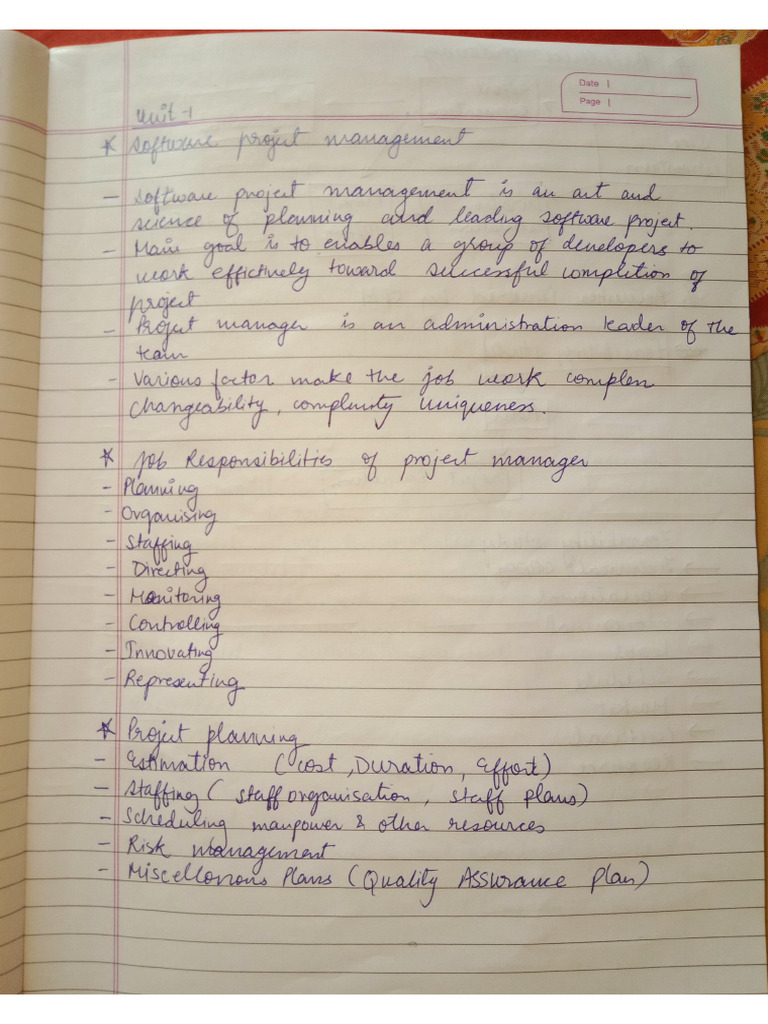 Date |
Page |
Unit-1
* Software project management
- Software project management is an art and
science of planning and leading software project.
- Main goal is to enables a group of developers to
work effictively toward successful completion of
project
- Project manager is an administration leader of the
team
- Various factor make the job work complen
changeability, complenity uniqueness.
* Job Responsibilities of project manager
- Planning
- Organising
- Staffing
- Directing
- Monitoring
- Controlling
- Innovating
- Representing
* Project planning
- Estimation (cost, Duration, Effort)
- Staffing (staff organisation, staff plans)
- Scheduling manpower & other resources
- Risk management
- Miscellonous Plans (Quality Assurance plan)